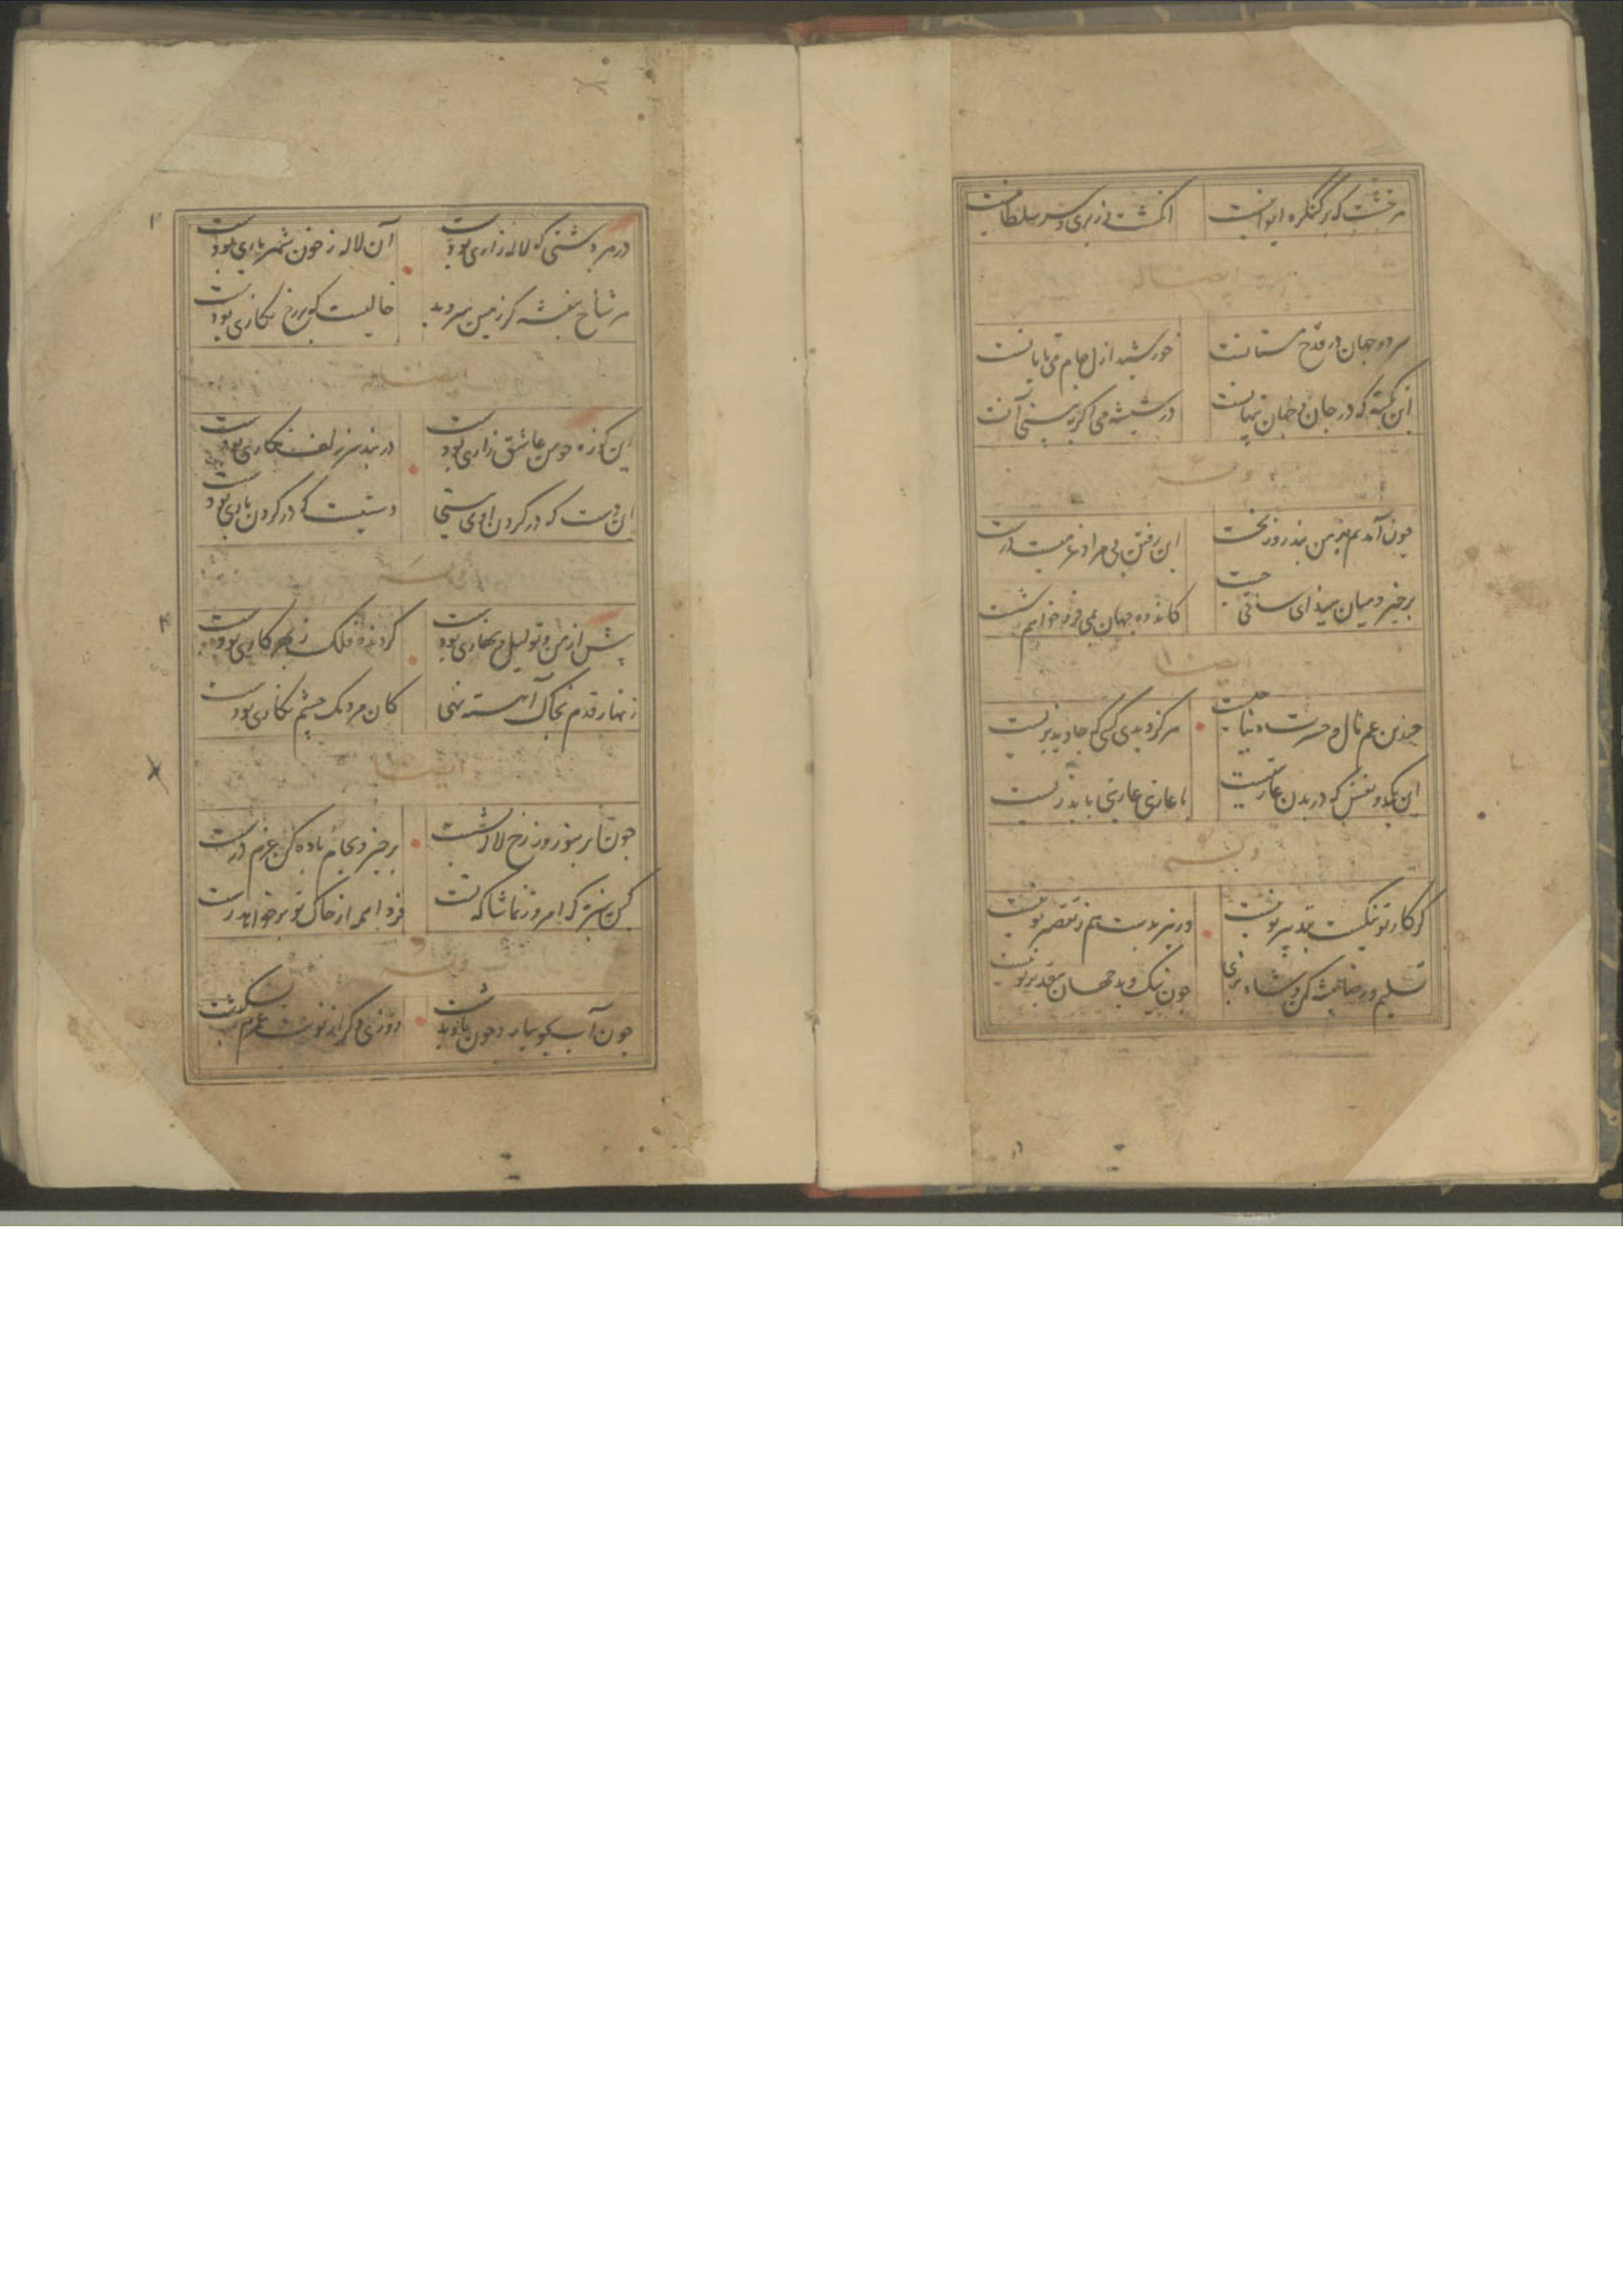 هر خشت که بر کنکره ایوانیست انکشت وزیری و سر سلطانیست
ایضاله
هر دو جهان در قدح مستانست خورشید ازل جام می تابانست
این نکته که در جان و جهان پنهانست در شیشه می اکر ببینی آنست
وله
چون آمدنم بمن نبد روز نخست این رفتن بی مراد عزمیست درست
برخیز و میان ببند ای ساقی چست کاندوه جهان بمی فرو خواهم شست
ایضا
چندین غم مال و حسرت دنیا چیست هرکز دیدی کسی که جاوید بزیست
این یکدو نفس که در بدن عاریتیست با عاریتی عاریتی باید زیست
وله
کر کار تو نیکست بتدبیر تو نیست ور نیز بدست هم ز تقصیر تو نیست
تسلیم و رضا پیشه کن و شاد بزی چون نیک و بد جهان بتقدیر تو نیست
در هر دشتی که لاله زاری بودست آن لاله ز خون شهریاری بودست
هر شاخ بنفشه کز زمین میروید خالیست که بر رخ نکاری بودست
ایضاله
این کوزه چو من عاشق زاری بودست در بند سر زلف نکاری بودست
این دست که در کردن او می بینی دستیست که در کردن یاری بودست
وله
پیش از من و تو لیل و نهاری بودست کردنده فلک ز بهر کاری بودست
زنهار قدم بخاک آهسته نهی کان مردمک چشم نکاری بودست
ایضا
چون ابر بنوروز رخ لاله بشست برخیز و بجام باده کن عزم درست
کین سبزه که امروز تماشاکه تست فردا همه از خاک تو برخواهد رست
وله
چون آب بجویبار و چون باد بدشت روزی دکر از نوبت عمرم بکذشت